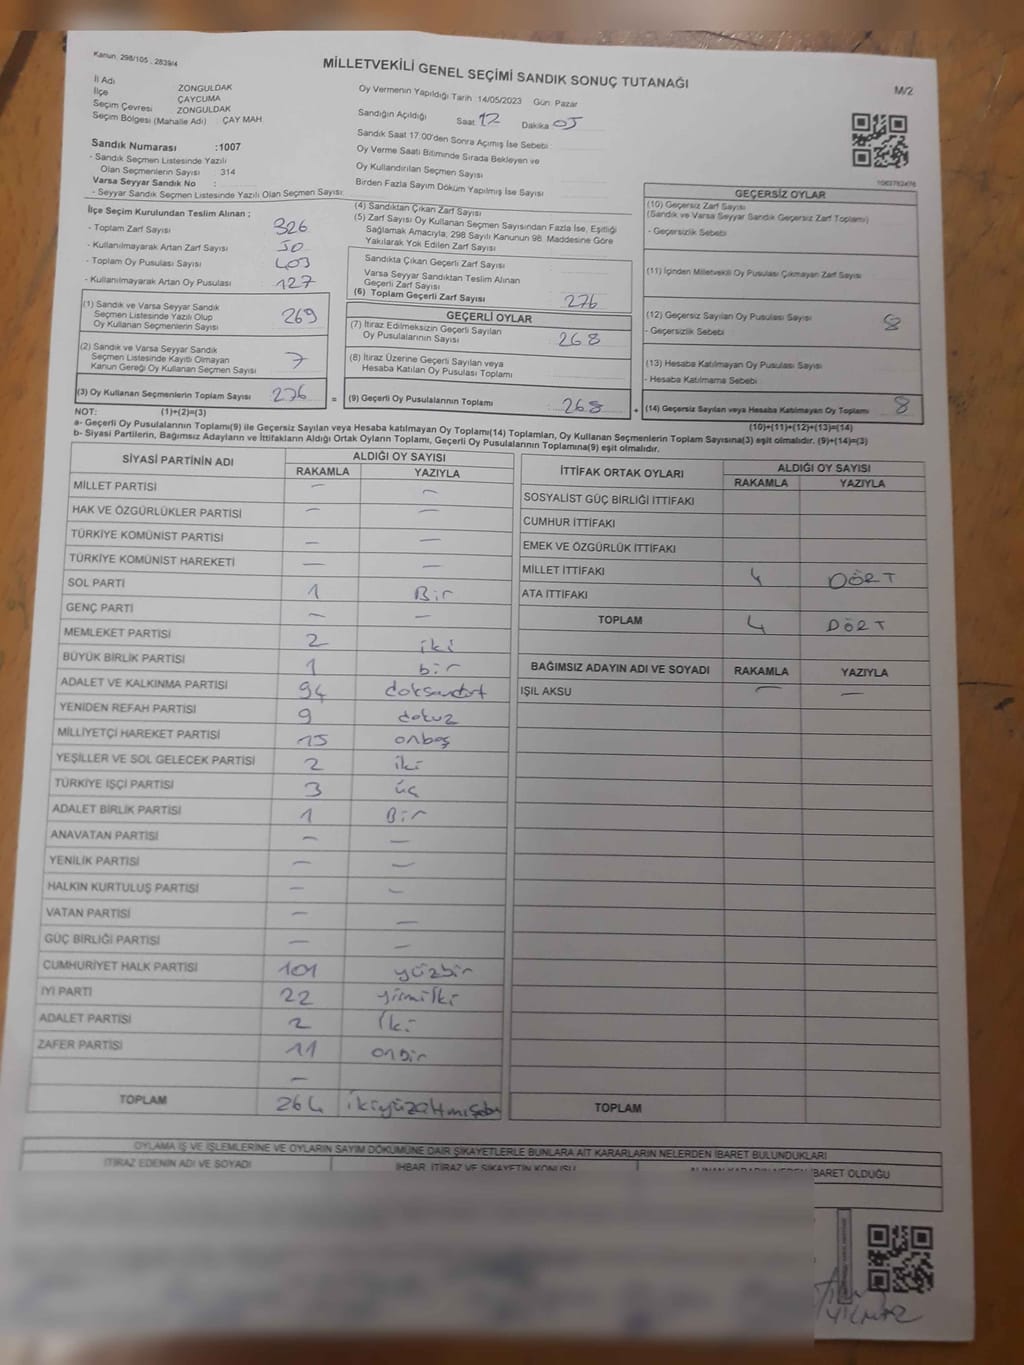 Kanun, 298/105 , 2839/4
MİLLETVEKİLİ GENEL SEÇİMİ SANDIK SONUÇ TUTANAĞI
M/2
İl Adı ZONGULDAK
İlçe ÇAYCUMA
Seçim Çevresi ZONGULDAK
Seçim Bölgesi (Mahalle Adı) : ÇAY MAH.
Sandık Numarası :1007
- Sandık Seçmen Listesinde Yazılı
Olan Seçmenlerin Sayısı : 314
Varsa Seyyar Sandık No :
- Seyyar Sandık Seçmen Listesinde Yazılı Olan Seçmen Sayısı:
Oy Vermenin Yapıldığı Tarih 14/05/2023 Gün: Pazar
Sandığın Açıldığı Saat 12 Dakika 05
Sandık Saat 17.00'den Sonra Açımış İse Sebebi :
Oy Verme Saati Bitiminde Sırada Bekleyen ve
Oy Kullandırılan Seçmen Sayısı
Birden Fazla Sayım Döküm Yapılmış İse Sayısı
1063782476
İlçe Seçim Kurulundan Teslim Alınan ;
- Toplam Zarf Sayısı 326
- Kullanılmayarak Artan Zarf Sayısı 50
- Toplam Oy Pusulası Sayısı 403
- Kullanılmayarak Artan Oy Pusulası 127
(1) Sandık ve Varsa Seyyar Sandık
Seçmen Listesinde Yazılı Olup
Oy Kullanan Seçmenlerin Sayısı 269
(2) Sandık ve Varsa Seyyar Sandık
Seçmen Listesinde Kayıtlı Olmayan
Kanun Gereği Oy Kullanan Seçmen Sayısı 7
(3) Oy Kullanan Seçmenlerin Toplam Sayısı 276
=
(4) Sandıktan Çıkan Zarf Sayısı
(5) Zarf Sayısı Oy Kullanan Seçmen Sayısından Fazla İse, Eşitliği
Sağlamak Amacıyla, 298 Sayılı Kanunun 98. Maddesine Göre
Yakılarak Yok Edilen Zarf Sayısı
Sandıkta Çıkan Geçerli Zarf Sayısı
Varsa Seyyar Sandıktan Teslim Alınan
Geçerli Zarf Sayısı
(6) Toplam Geçerli Zarf Sayısı 276
GEÇERLİ OYLAR
(7) İtiraz Edilmeksizin Geçerli Sayılan
Oy Pusulalarının Sayısı 268
(8) İtiraz Üzerine Geçerli Sayılan veya
Hesaba Katılan Oy Pusulası Toplamı
(9) Geçerli Oy Pusulalarının Toplamı 268
+
GEÇERSİZ OYLAR
(10) Geçersiz Zarf Sayısı
(Sandık ve Varsa Seyyar Sandık Geçersiz Zarf Toplamı)
- Geçersizlik Sebebi
(11) İçinden Milletvekili Oy Pusulası Çıkmayan Zarf Sayısı
(12) Geçersiz Sayılan Oy Pusulası Sayısı 8
- Geçersizlik Sebebi
(13) Hesaba Katılmayan Oy Pusulası Sayısı
- Hesaba Katılmama Sebebi
(14) Geçersiz Sayılan veya Hesaba Katılmayan Oy Toplamı 8
NOT: (1)+(2)=(3)
(10)+(11)+(12)+(13)=(14)
a- Geçerli Oy Pusulalarının Toplamı(9) ile Geçersiz Sayılan veya Hesaba katılmayan Oy Toplamı(14) Toplamları, Oy Kullanan Seçmenlerin Toplam Sayısına(3) eşit olmalıdır. (9)+(14)=(3)
b- Siyasi Partilerin, Bağımsız Adayların ve İttifakların Aldığı Ortak Oyların Toplamı, Geçerli Oy Pusulalarının Toplamına(9) eşit olmalıdır.
SİYASİ PARTİNİN ADI ALDIĞI OY SAYISI
RAKAMLA YAZIYLA
MİLLET PARTİSİ — —
HAK VE ÖZGÜRLÜKLER PARTİSİ — —
TÜRKİYE KOMÜNİST PARTİSİ — —
TÜRKİYE KOMÜNİST HAREKETİ — —
SOL PARTİ 1 Bir
GENÇ PARTİ — —
MEMLEKET PARTİSİ 2 iki
BÜYÜK BİRLİK PARTİSİ 1 bir
ADALET VE KALKINMA PARTİSİ 94 doksandört
YENİDEN REFAH PARTİSİ 9 dokuz
MİLLİYETÇİ HAREKET PARTİSİ 15 onbeş
YEŞİLLER VE SOL GELECEK PARTİSİ 2 iki
TÜRKİYE İŞÇİ PARTİSİ 3 üç
ADALET BİRLİK PARTİSİ 1 Bir
ANAVATAN PARTİSİ — —
YENİLİK PARTİSİ — —
HALKIN KURTULUŞ PARTİSİ — —
VATAN PARTİSİ — —
GÜÇ BİRLİĞİ PARTİSİ — —
CUMHURİYET HALK PARTİSİ 101 yüzbir
İYİ PARTİ 22 yirmiİki
ADALET PARTİSİ 2 İki
ZAFER PARTİSİ 11 onbir
—
TOPLAM 264
İTTİFAK ORTAK OYLARI ALDIĞI OY SAYISI
RAKAMLA YAZIYLA
SOSYALİST GÜÇ BİRLİĞİ İTTİFAKI
CUMHUR İTTİFAKI
EMEK VE ÖZGÜRLÜK İTTİFAKI
MİLLET İTTİFAKI 4 DÖRT
ATA İTTİFAKI
TOPLAM 4 DÖRT
BAĞIMSIZ ADAYIN ADI VE SOYADI RAKAMLA YAZIYLA
IŞIL AKSU — —
TOPLAM
OYLAMA İŞ VE İŞLEMLERİNE VE OYLARIN SAYIM DÖKÜMÜNE DAİR ŞİKAYETLERLE BUNLARA AİT KARARLARIN NELERDEN İBARET BULUNDUKLARI
İTİRAZ EDENİN ADI VE SOYADI
İHBAR, İTİRAZ VE ŞİKAYETİN KONUSU
İBARET OLDUĞU
YILMAZ